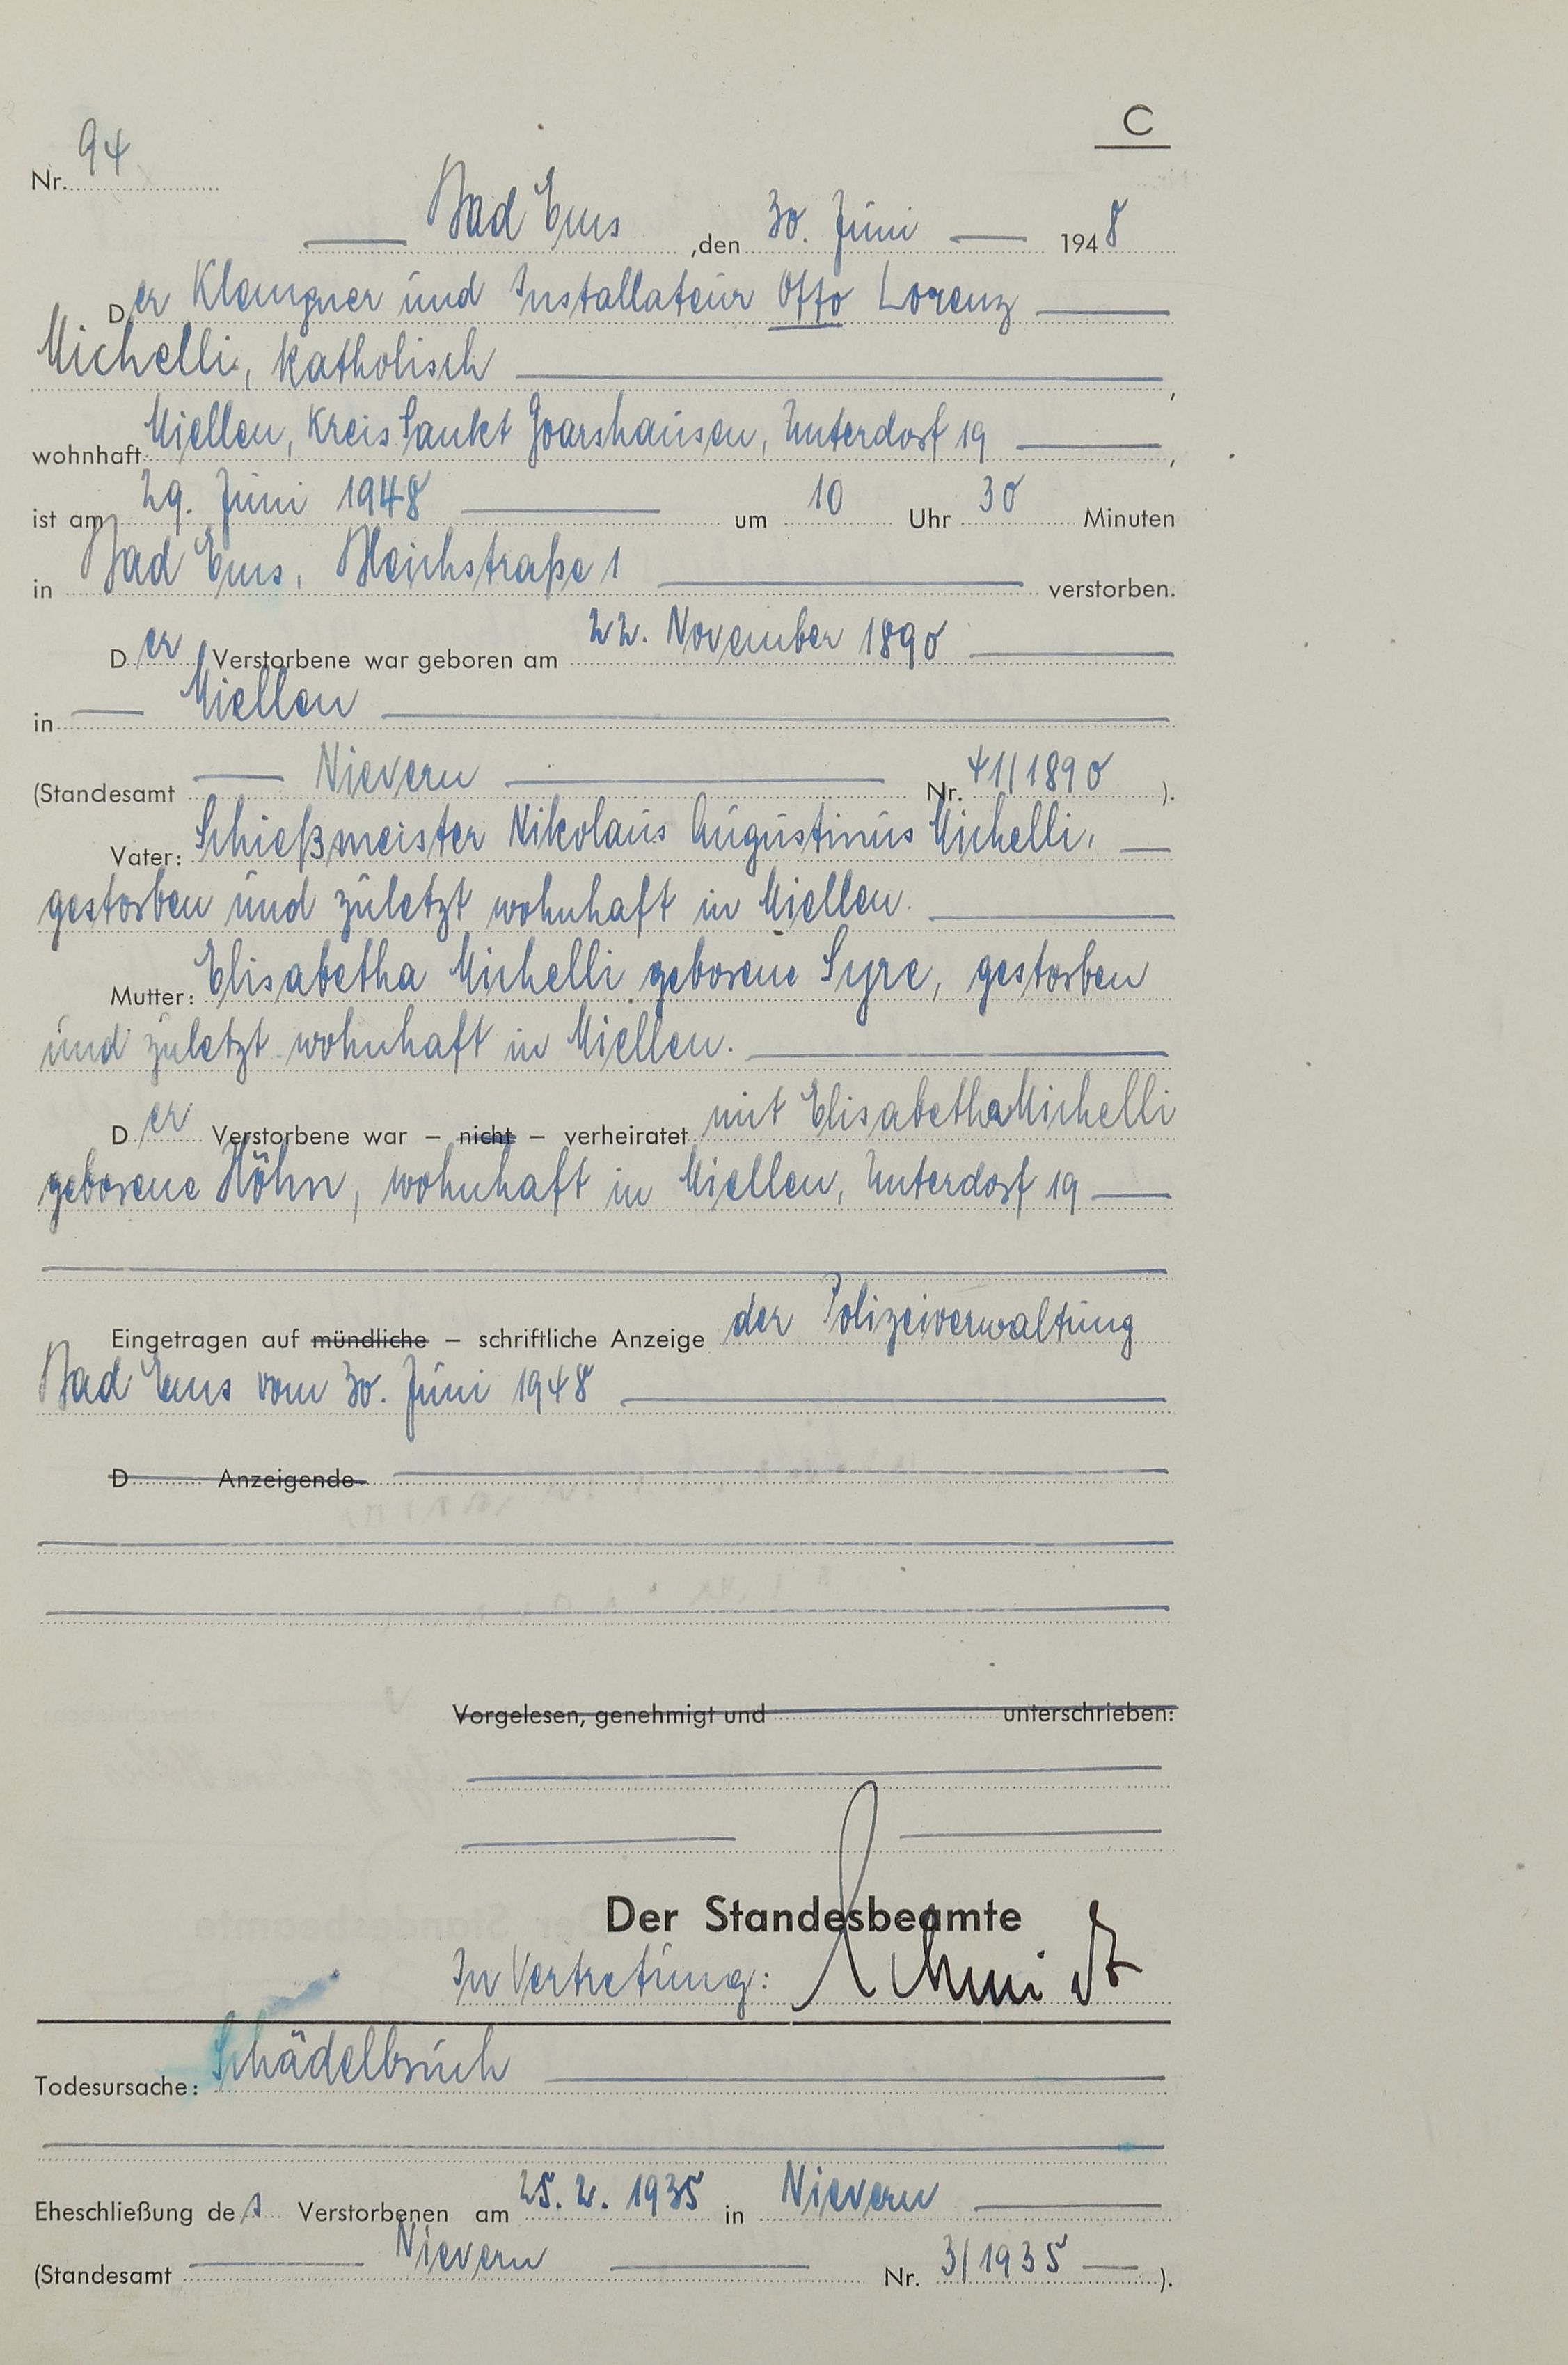 C
Nr. 94
Bad Ems, den 30. Juni 1948
Der Klempner und Installateur Otto Lorenz
Michelli, katholisch,
wohnhaft Miellen, Kreis Sankt Goarshausen, Unterdorf 19,
ist am 29. Juni 1948 um 10 Uhr 30 Minuten
in Bad Ems, Bleichstraße 1 verstorben.
Der Verstorbene war geboren am 22. November 1890
in Miellen
(Standesamt Nievern Nr. 41/1890).
Vater: Schießmeister Nikolaus Augustinus Michelli,
gestorben und zuletzt wohnhaft in Miellen.
Mutter: Elisabetha Michelli geborene Syre, gestorben
und zuletzt wohnhaft in Miellen.
Der Verstorbene war – nicht – verheiratet mit Elisabetha Michelli
geborene Höhn, wohnhaft in Miellen, Unterdorf 19
Eingetragen auf mündliche – schriftliche Anzeige der Polizeiverwaltung
Bad Ems vom 30. Juni 1948
D Anzeigende
Vorgelesen, genehmigt und unterschrieben:
Der Standesbeamte
In Vertretung: Schmidt
Todesursache: Schädelbruch
Eheschließung des Verstorbenen am 25. 2. 1935 in Nievern
(Standesamt Nievern Nr. 3/1935).